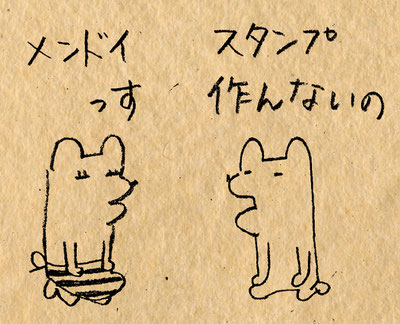 スタンプ
作んないの
メンドイ
っす